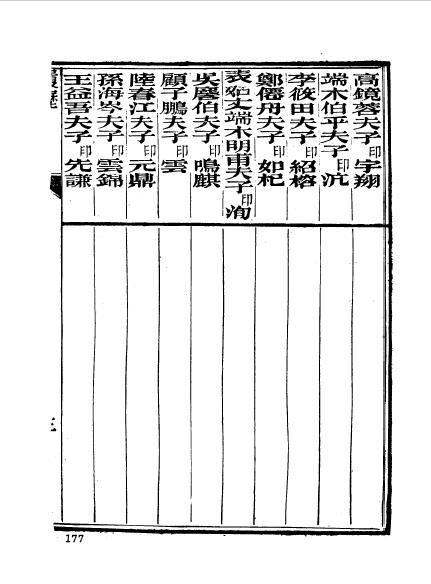 高鏡蓉夫子印宇翔
端木伯平夫子印沆
李筱田夫子印紹榕
鄭僊舟夫子印如杞
表丈端木明甫夫子印洵
吳慶伯夫子印鳴麒
顧子鵬夫子印雲
陸春江夫子印元鼎
孫海岑夫子印雲錦
王益吾夫子印先謙
三
177